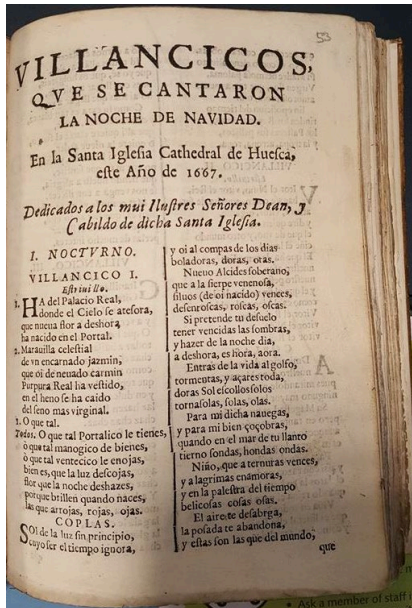 53
VILLANCICOS,
QVE SE CANTARON
LA NOCHE DE NAVIDAD.
En la Santa Iglesia Cathedral de Huesca,
este Año de 1667.
Dedicados a los mui Ilustres Señores Dean, y
Cabildo de dicha Santa Iglesia.
I. NOCTVRNO.
VILLANCICO I.
Estriuillo.
1. HA del Palacio Real,
donde el Cielo se atesora,
que nueua flor a deshora
ha nacido en el Portal.
2. Marauilla celestial
de vn encarnado jazmin,
que oi de neuado carmin
Purpura Real ha vestido,
en el heno se ha caido
del seno mas virginal.
1. O que tal.
Todos. O que tal Portalico le tienes,
ò que tal manogico de bienes,
ò que tal ventecico le enojas,
bien es, que la luz descojas,
flor que la noche deshazes,
porque brillen quando naces,
las que arrojas, rojas, ojas.
COPLAS.
Sol de la luz sin principio,
cuyo ser el tiempo ignora,
y oi al compas de los dias
boladoras, doras, oras.
Nueuo Alcides soberano,
que a la sierpe venenosa,
siluos (de oi nacido) vences,
desenroscas, roscas, oscas.
Si pretende tu desuelo
tener vencidas las sombras,
y hazer de la noche dia,
a deshora, es hora, aora.
Entras de la vida al golfo,
tormentas, y açares toda,
doras Sol escollos solos
tornasolas, solas, olas.
Para mi dicha nauegas,
y para mi bien çoçobras,
quando en el mar de tu llanto
tierno sondas, hondas ondas.
Niño, que a ternuras vences,
y a lagrimas enamoras,
y en la palestra del tiempo
belicosas cosas osas.
El aire te desabrga,
la posada te abandona,
y estas son las que del mundo,
que
Ask a member of staff